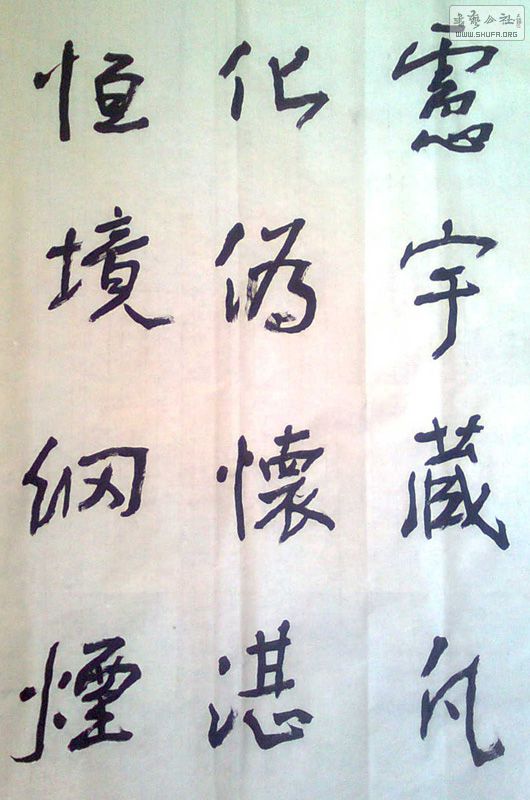 書藝公社
WWW.SHUFA.ORG
慮宇藏
化偽懷湛
恒境煙